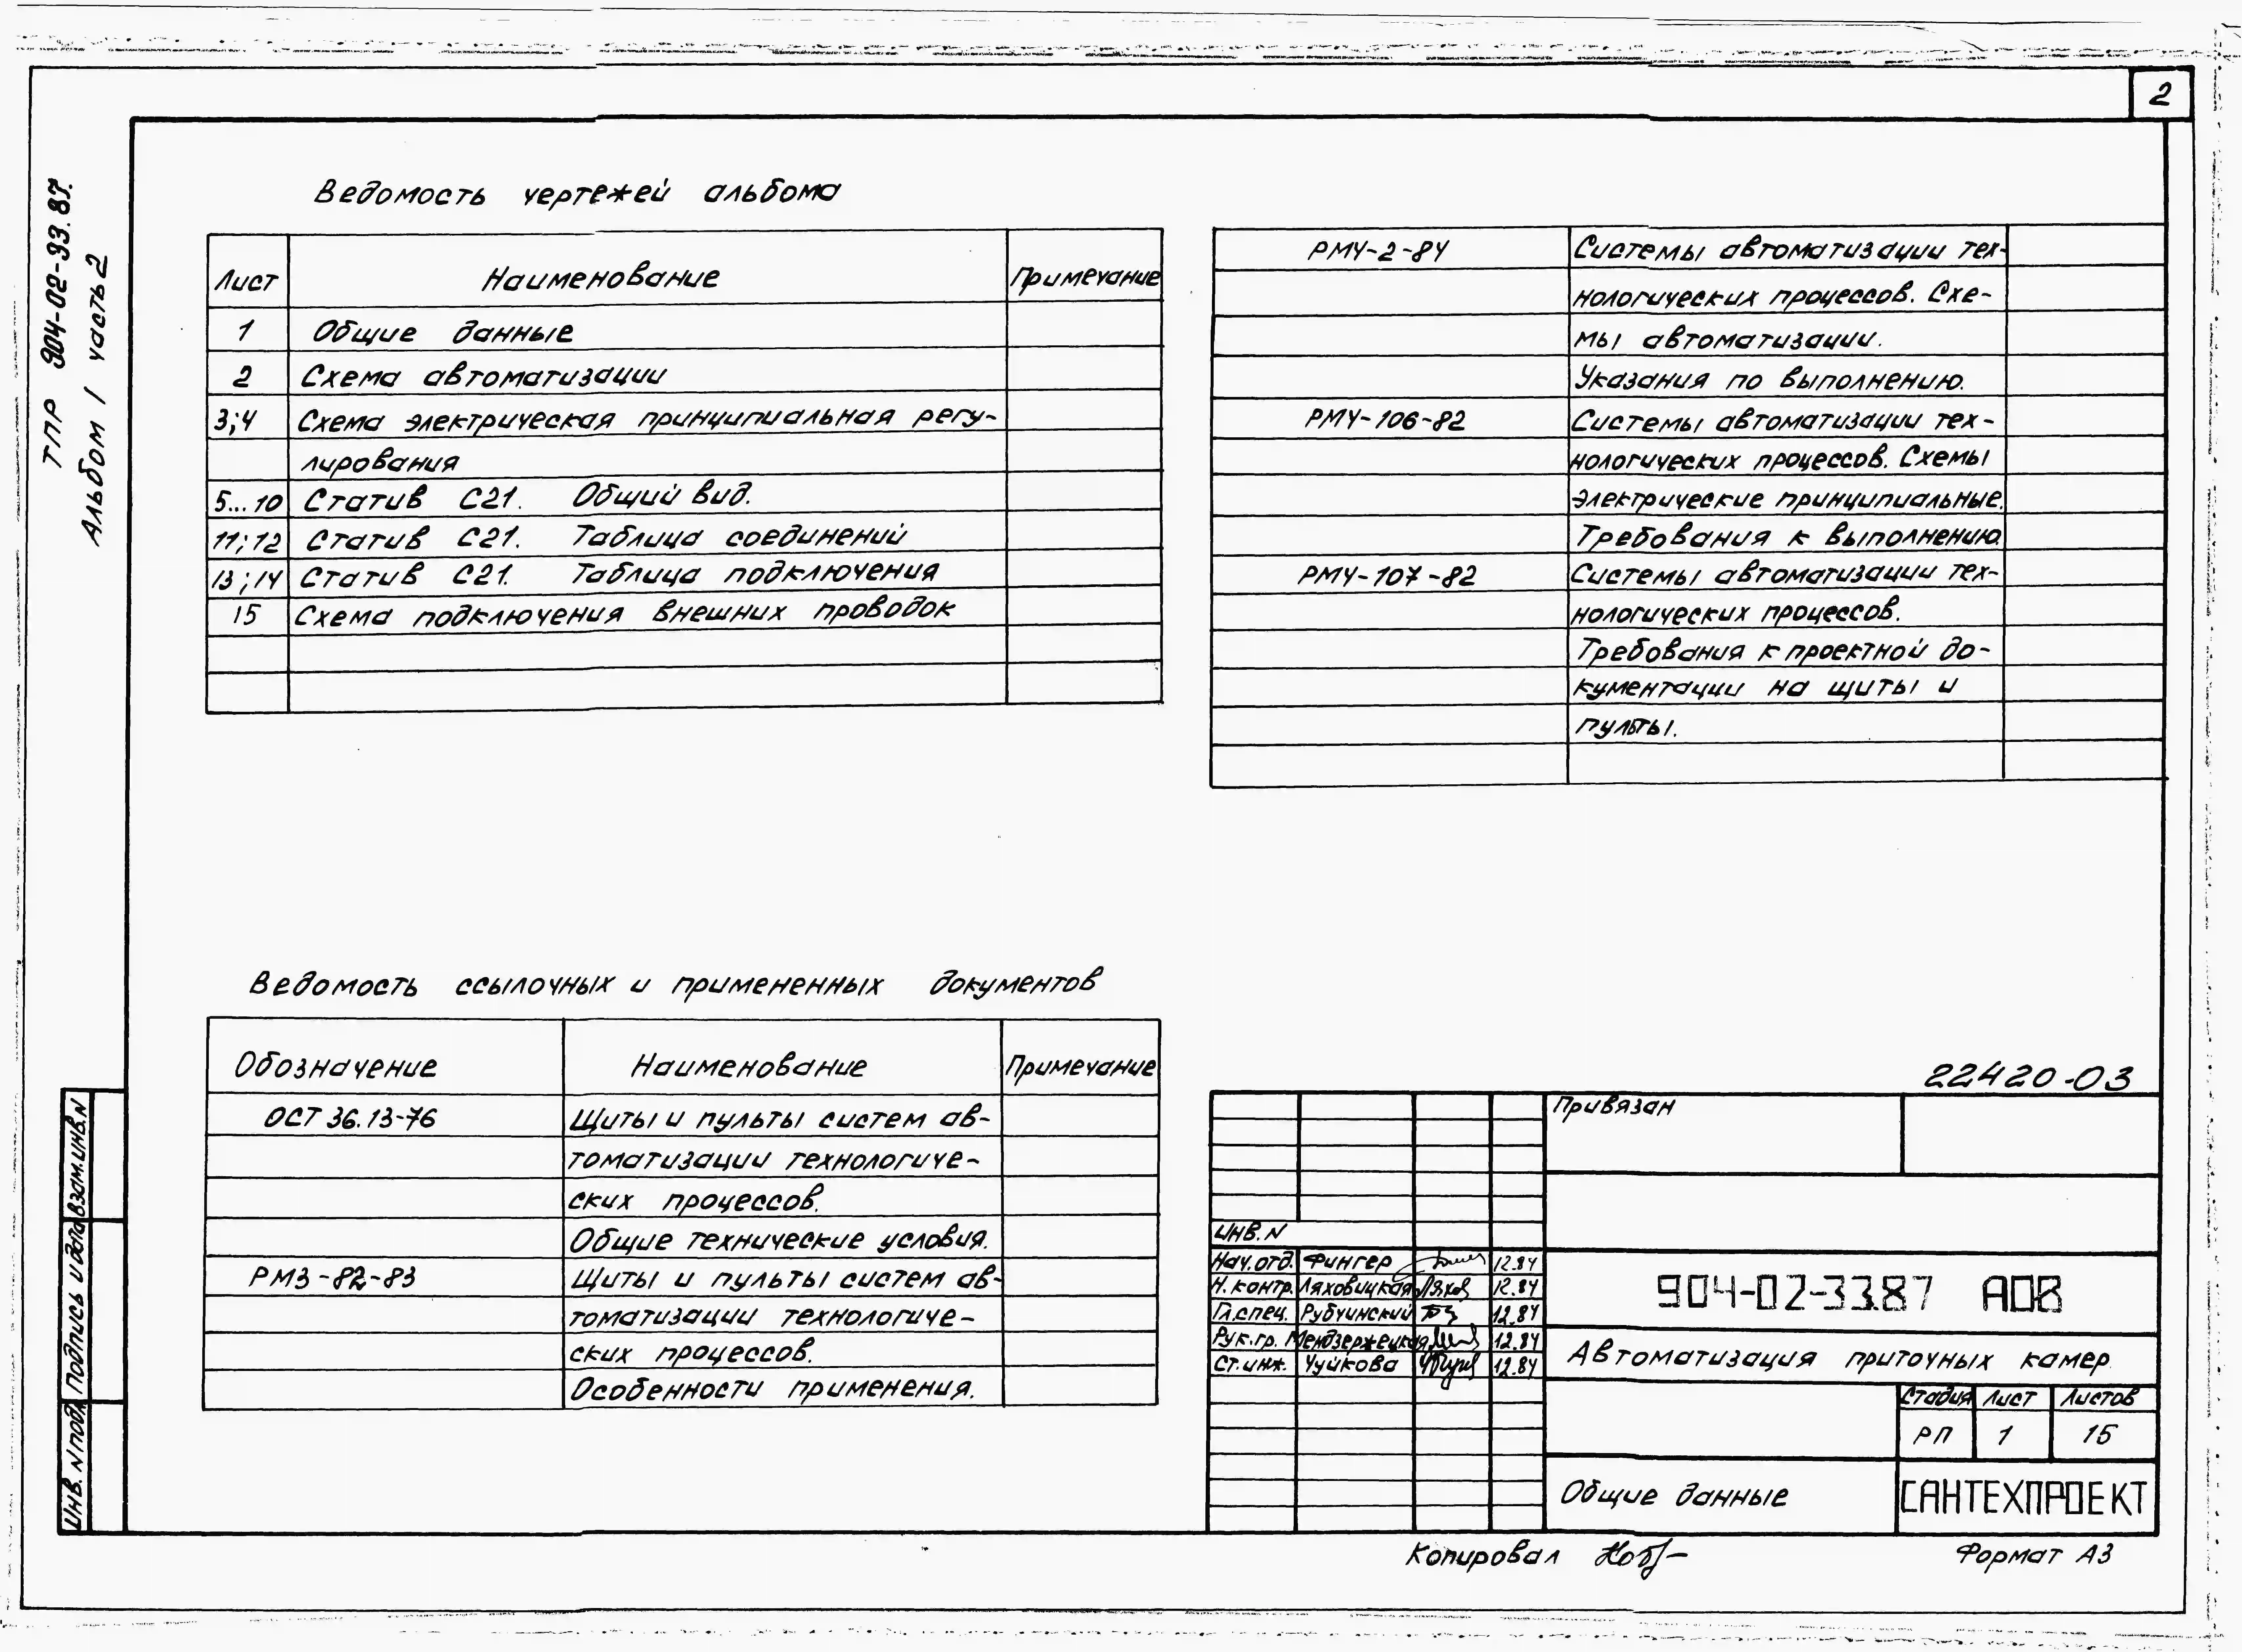 2
ТПР 904-02-93.87.
Альбом 1 часть 2
Ведомость чертежей альбома
Лист Наименование Примечание
1 Общие данные
2 Схема автоматизации
3;4 Схема электрическая принципиальная регу-
лирования
5...10 Статив С21. Общий вид.
11;12 Статив С21. Таблица соединений
13;14 Статив С21. Таблица подключения
15 Схема подключения внешних проводок
РМ4-2-84 Системы автоматизации тех-
нологических процессов. Схе-
мы автоматизации.
Указания по выполнению.
РМ4-106-82 Системы автоматизации тех-
нологических процессов. Схемы
электрические принципиальные.
Требования к выполнению.
РМ4-107-82 Системы автоматизации тех-
нологических процессов.
Требования к проектной до-
кументации на щиты и
пульты.
Ведомость ссылочных и примененных документов
Обозначение Наименование Примечание
ОСТ 36.13-76 Щиты и пульты систем ав-
томатизации технологиче-
ских процессов.
Общие технические условия.
РМ3-82-83 Щиты и пульты систем ав-
томатизации технологиче-
ских процессов.
Особенности применения.
22420-03
Привязан
Инв. N
Нач. отд. Фингер 12.84
Н. контр. Ляховицкая Лях 12.84
Гл. спец. Рубчинский 12.84
Рук. гр. Мендзержецкая 12.84
Ст. инж. Чуйкова 12.84
904-02-33.87 АОВ
Автоматизация приточных камер.
Стадия Лист Листов
РП 1 15
Общие данные
САНТЕХПРОЕКТ
Инв. N подл. Подпись и дата Взам. инв. N
Копировал
Формат А3